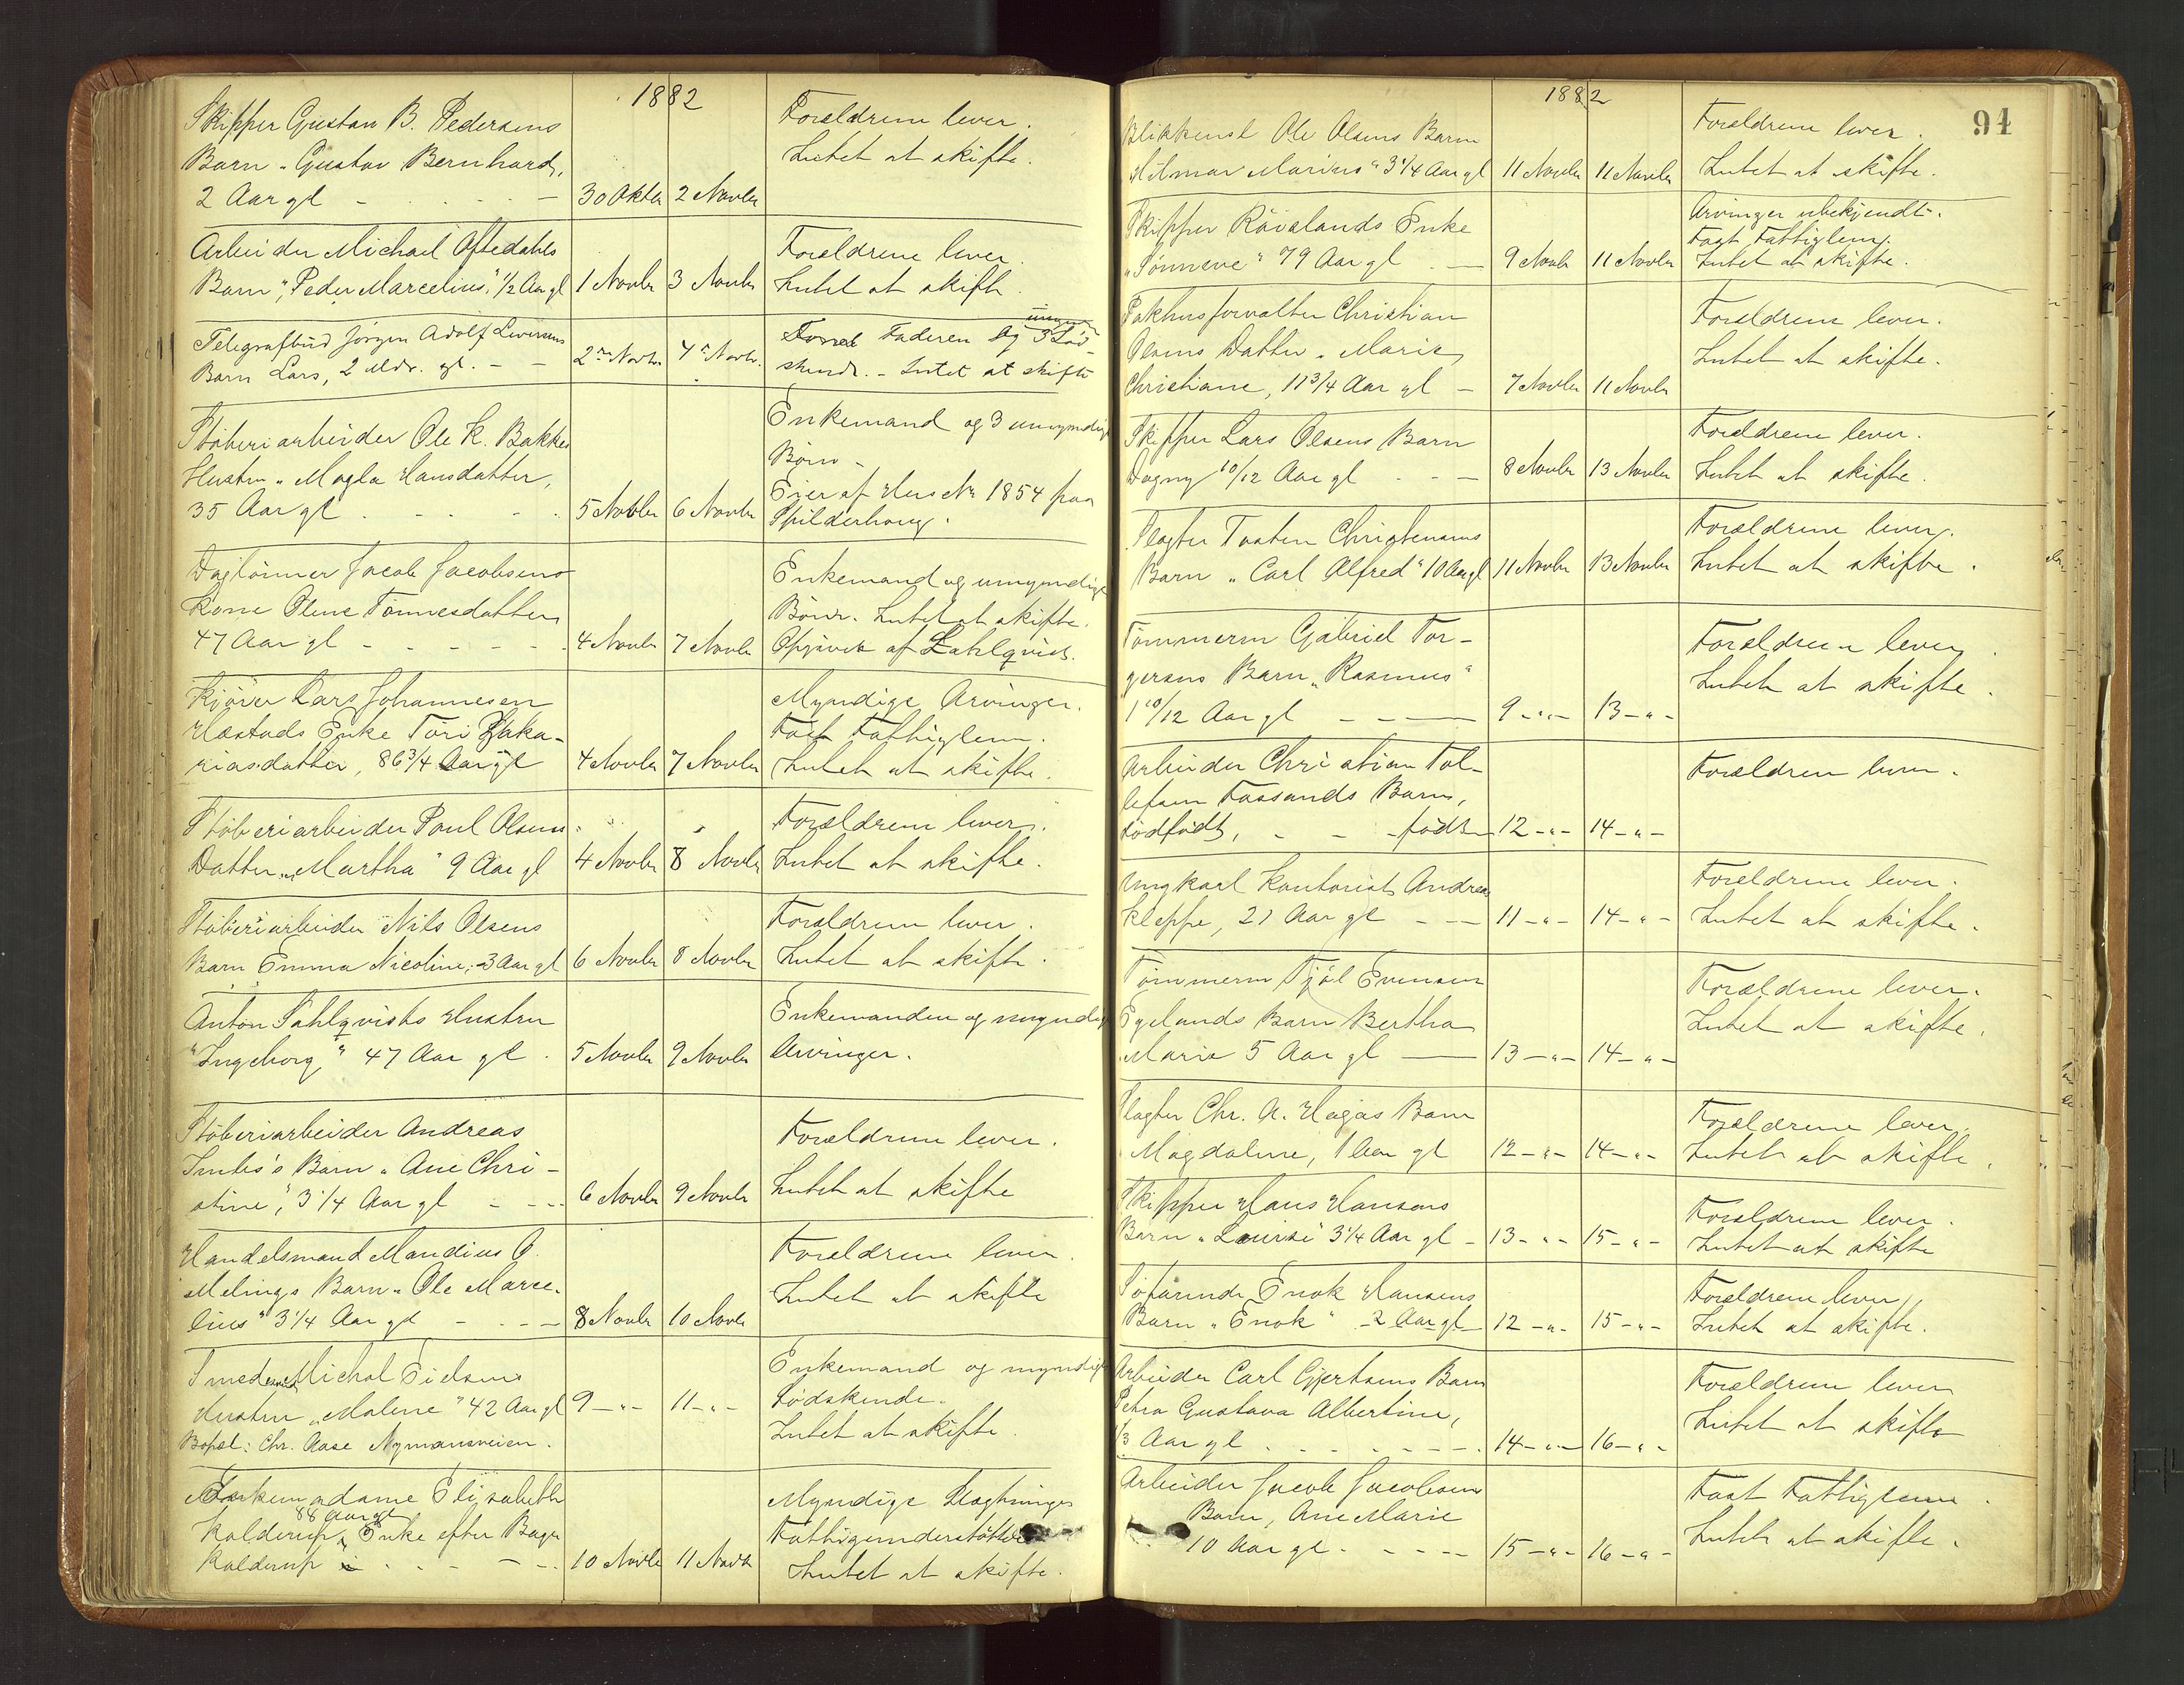 1882
Skipper Gustav B. Pedersens
Barn „Gustav Bernhard,
2 Aar gl - - -
30 Oktbr 2 Novbr
Forældrene lever.
Intet at skifte.
Arbeider Michael Oftedahls
Barn „Peder Marcelius", 1/2 Aar gl
1 Novbr 3 Novbr
Forældrene lever.
Intet at skifte.
Telegrafbud Jörgen Adolf
Barn Lars, 2 Mdr. gl. - -
2 Novbr. 4 Novbr.
Faderen og 3 umyn Söd-
skende. - Intet at skifte
Stöberiarbeider Ole K. Bakkes
Hustru „Magla Hansdatter,
35 Aar gl
5 Novbr 6 Novbr
Enkemand og 3 umyndige
Börn -
Eier af Hus No 1854 paa
Spilderhoug.
Daglönner Jacob Jacobsens
Kone Olene Tönnesdatter
47 Aar gl - - - -
4 Novbr 7 Novbr
Enkemand og umyndige
Börn. Intet at skifte.
Opgivet af Sahlqvist.
Kjörer Lars Johannesen
Hæstads Enke Tori Zaka-
riasdatter, 86 3/4 Aar gl
4 Novbr 7 Novbr
Myndige Arvinger.
Fast Fattiglem.
Intet at skifte.
Stöberiarbeider Paul Olsens
Datter „Martha" 9 Aar gl
4 Novbr 8 Novbr
Forældrene lever.
Intet at skifte.
Stöberiarbeider Nils Olsens
Barn Emma Nicoline, 3 Aar gl
6 Novbr 8 Novbr
Forældrene lever.
Intet at skifte.
Anton Sahlqvists Hustru
"Ingeborg" 47 Aar gl.
5 Novbr 9 Novbr
Enkemanden og umyndige
Arvinger.
Stöberiarbeider Andreas
Barn „Ane Chri-
stine", 3 1/4 Aar gl - - -
6 Novbr 9 Novbr
Forældrene lever.
Intet at skifte
Handelsmand Mandius O.
Melings Barn „Ole Marce-
lius" 3 1/4 Aar gl - - -
8 Novbr 10 Novbr
Forældrene lever.
Intet at skifte
Michal Eielsens
Hustru „Malene" 42 Aar gl
Bopæl: Chr. Aase Nymansveien.
9 -„- 11 -„-
Enkemand og myndige
Södskende.
Intet at skifte.
Enkemadame Elisabeth
88 Aar gl
Kolderup, Enke efter Bager
Kolderup - - -
10 Novbr 11 Novbr
Myndige Slægtninger
Fattigunderstöttet
Intet at skifte.
1882
94
Blikkensl Ole Olsens Barn
„Hilmar Marius" 3 1/4 Aar gl
11 Novbr 11 Novbr
Forældrene lever.
Intet at skifte.
Skipper Rövelands Enke
„Sönneve" 79 Aar gl. -
9 Novbr 11 Novbr
Arvinger ubekjendt.
Fast Fattiglem.
Intet at skifte.
Pakhusforvalter Christian
Olsens Datter „Marie
Christiane, 11 3/4 Aar gl -
7 Novbr 11 Novbr
Forældrene lever.
Intet at skifte.
Skipper Lars Olsens Barn
Dagny 10/12 Aar gl - - -
8 Novbr 13 Novbr
Forældrene lever.
Intet at skifte.
Slagter Torsten Christensens
Barn „Carl Alfred" 10 Aar gl
11 Novbr 13 Novbr
Forældrene lever.
Intet at skifte.
Tömmerm Gabriel Tor-
gersens Barn „Rasmus"
1 10/12 Aar gl - - -
9 -„- 13 -„-
Forældrene lever.
Intet at skifte.
Arbeider Christian Tol-
lefsen Fossands Barn,
dödfödt, - - - födt
12 -„- 14 -„-
Forældrene lever.
Ungkarl Kontorist Andreas
Kleppe, 21 Aar gl - - -
11 -„- 14 -„-
Forældrene lever.
Intet at skifte.
Tömmerm Tjöl Evensen
Egelands Barn Bertha
Marie 5 Aar gl -
13 -„- 14 -„-
Forældrene lever.
Intet at skifte.
Slagter Chr. A. Hagas Barn
Magdalene, 1 Aar gl
12 -„- 14 -„-
Forældrene lever.
Intet at skifte.
Skipper Hans Hansens
Barn „Lovise" 3 1/4 Aar gl -
13 -„- 15 -„-
Forældrene lever.
Intet at skifte
Söfarende Enok Hansens
Barn „Enok" - 2 Aar gl
12 -„- 15 -„-
Forældrene lever,
Intet at skifte.
Arbeider Carl Gjertsens Barn
Petra Gustava Albertine,
1/3 Aar gl - - - -
14 -„- 16 -„-
Forældrene lever
Intet at skifte
Arbeider Jacob Jacobsens
Barn, Ane Marie
10 Aar gl - - - -
15 -„- 16 -„-
Fast Fattiglem.
Intet at skifte.